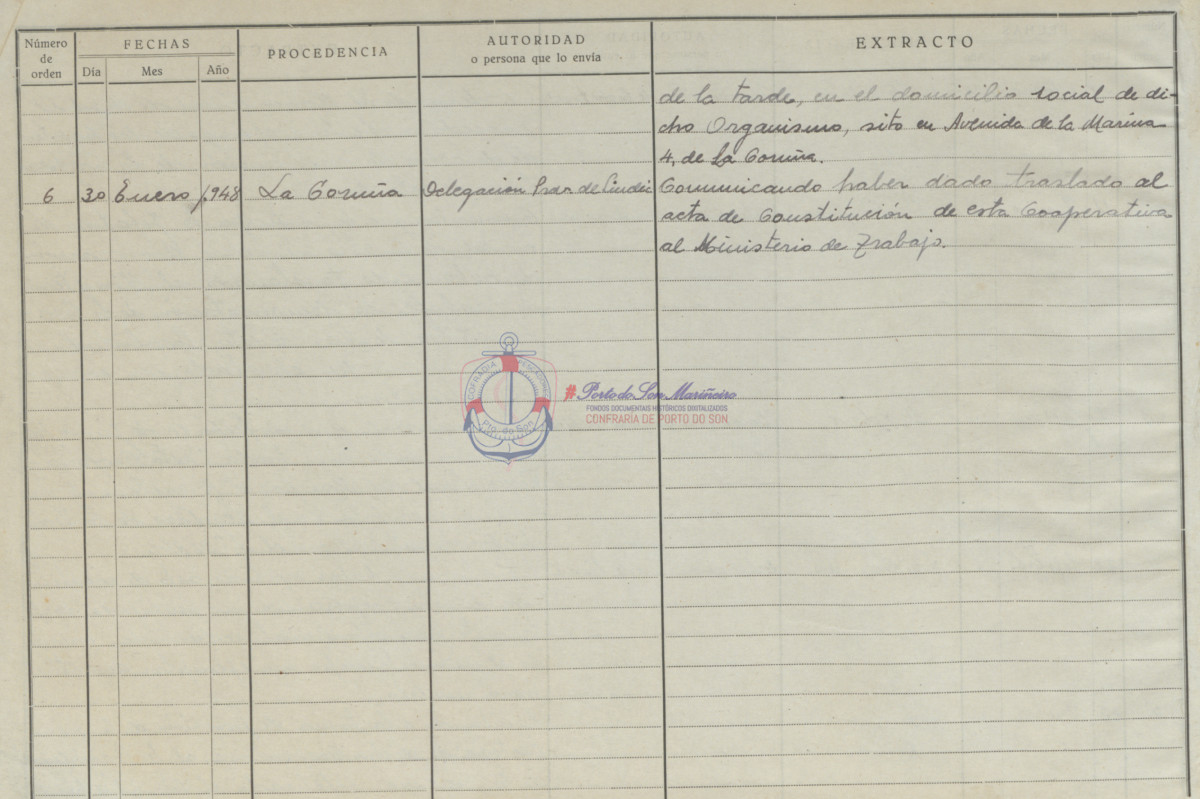 Número de orden
FECHAS
Día
Mes
Año
PROCEDENCIA
AUTORIDAD
o persona que lo envía
EXTRACTO
de la tarde, en el domicilio social de di-
cho Organismo, sito en Avenida de la Marina
4, de La Coruña.
6 30 Enero 1.948 La Coruña Delegación de Comunicando haber dado traslado al
acta de Constitución de esta Cooperativa
al Ministerio de Trabajo.
COFRADIA PESCADORES
Pto. do Son
# Porto do Son Mariñeiro
FONDOS DOCUMENTAIS HISTÓRICOS DIGITALIZADOS
CONFRARÍA DE PORTO DO SON